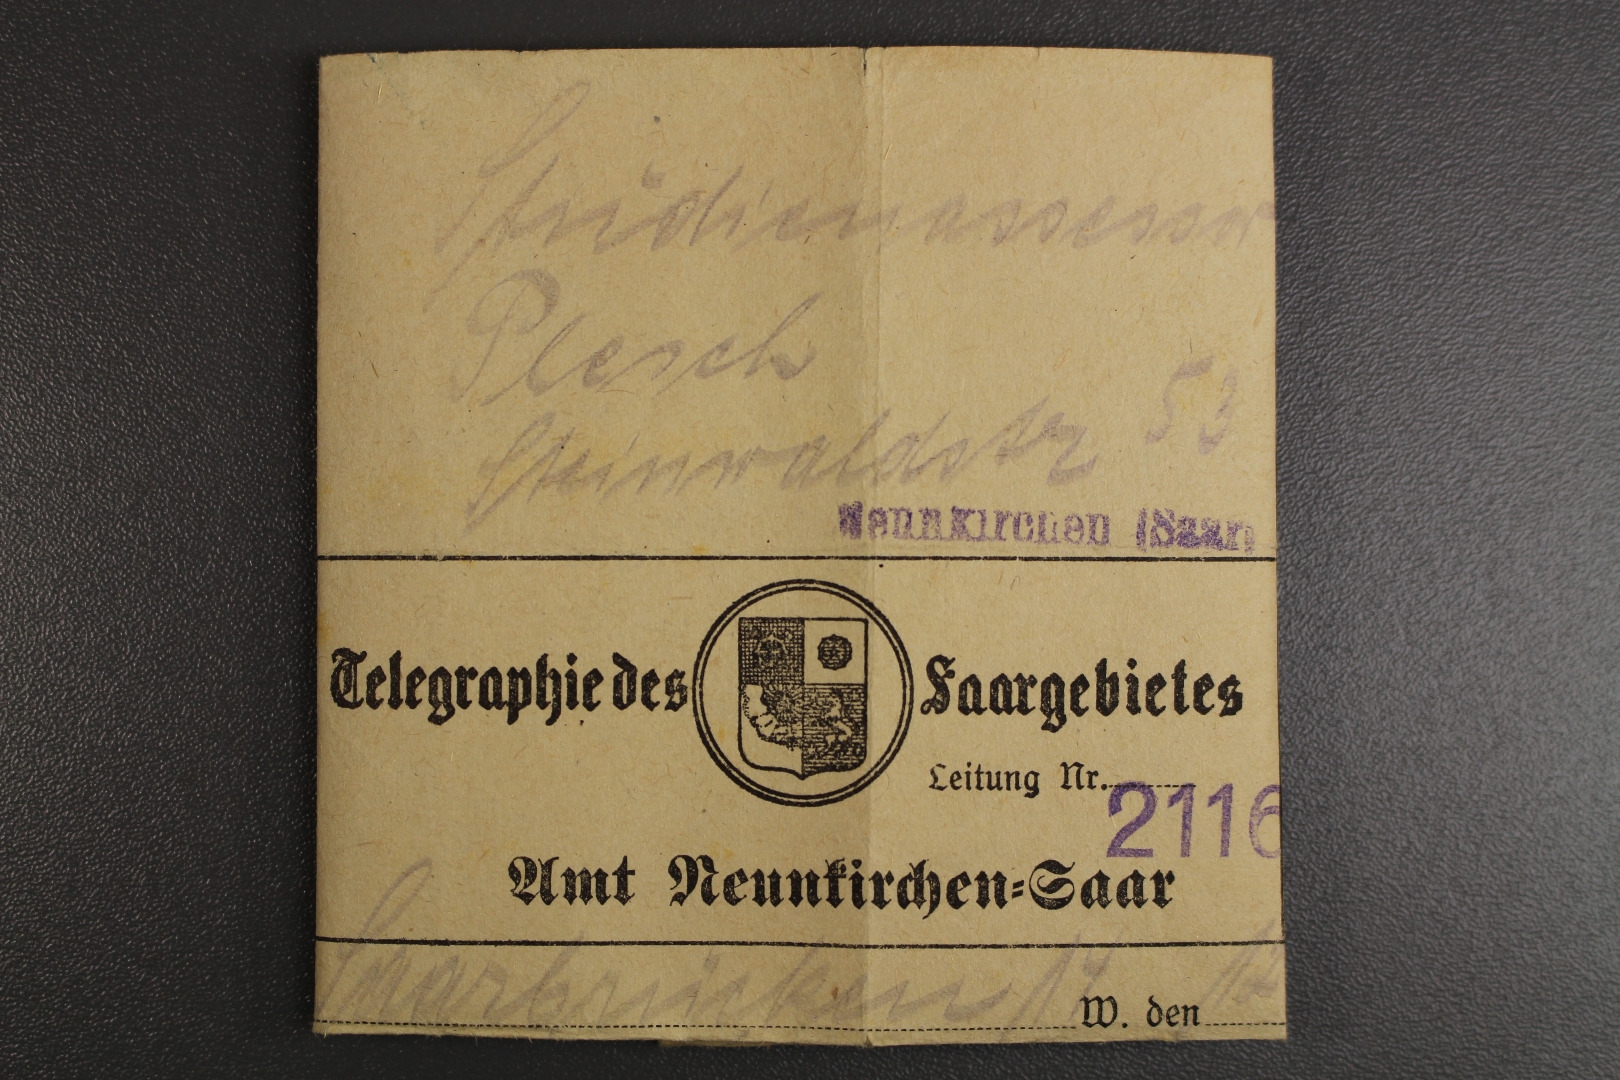 Studienassessor
Plesch
Steinwaldstr 53
Neunkirchen (Saar)
Telegraphie des Saargebietes
Leitung Nr. 2116
Amt Neunkirchen-Saar
Saarbrücken 14 W. den 12